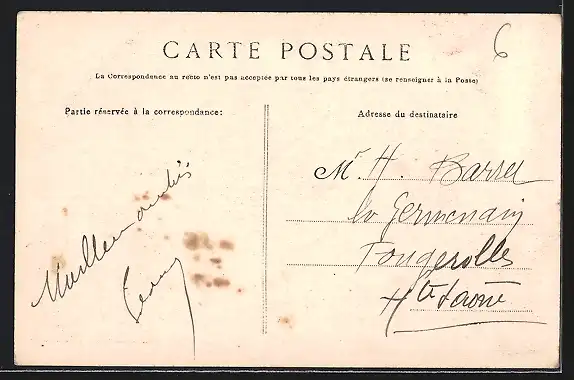 6
CARTE POSTALE
La Correspondance au recto n'est pas acceptée par tous les pays étrangers (se renseigner à la Poste)
Partie réservée à la correspondance:
Adresse du destinataire
Mr. H.
Fougerolles
Hte Saône